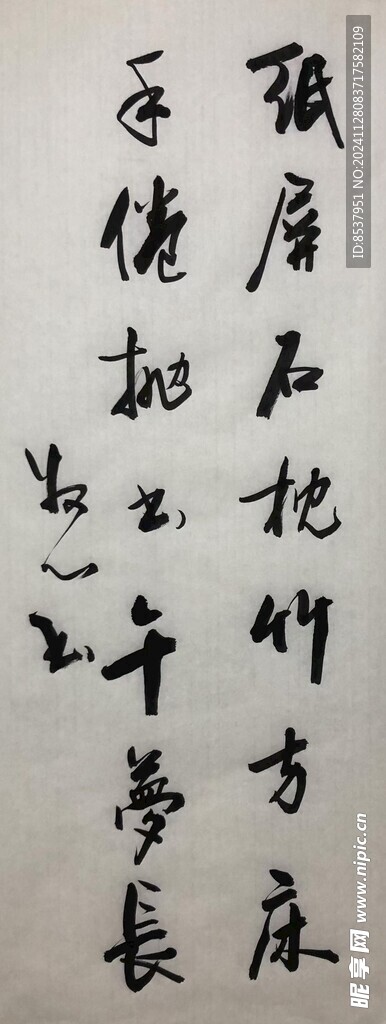 纸屏石枕竹方床
手倦抛书午夢長
牧心书
ID:8537951 NO:20241128083717582109
昵享网 www.nipic.cn